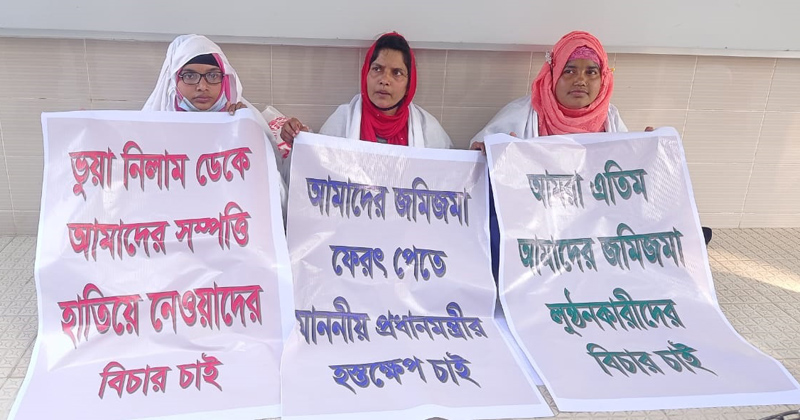 ভুয়া নিলাম ডেকে
আমাদের সম্পত্তি
হাতিয়ে নেওয়াদের
বিচার চাই
আমাদের জমিজমা
ফেরৎ পেতে
মাননীয় প্রধানমন্ত্রীর
হস্তক্ষেপ চাই
আমরা এতিম
আমাদের জমিজমা
লুণ্ঠনকারীদের
বিচার চাই